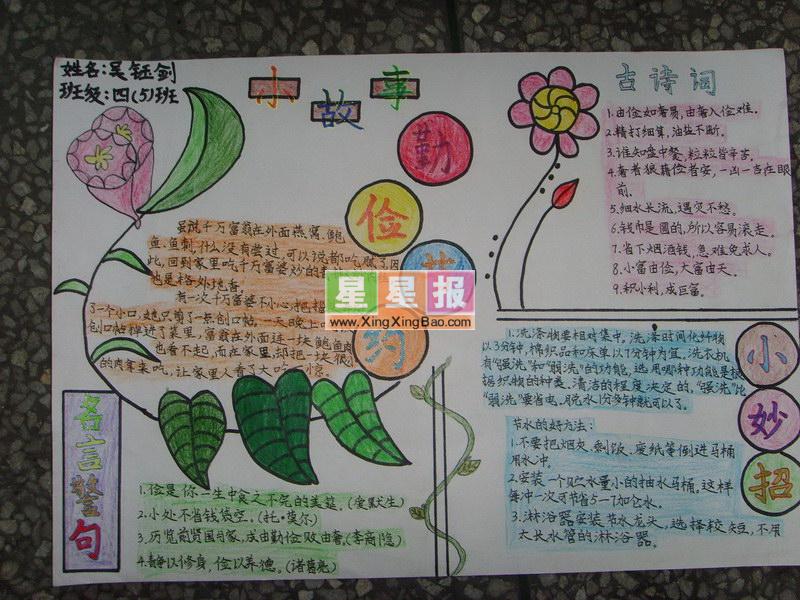 姓名:吴钰剑
班级:四(5)班
小故事
勤俭节约
虽说千万富翁在外面燕窝、鲍
鱼、鱼刺,什么没有尝过,可以说都吃腻了,因
此,回到家里吃千万富婆炒的
也是格外地香。
有一次千万富婆不小心把
了一个小口,她只剪了一点创口帖,一天晚上
创口帖掉进了菜里,富翁在外面连一块鲍鱼肉
也看不起,而在家里,却把一块很小
的肉拿来吃,让家里人看了大吃一惊。
星星报
www.XingXingBao.com
名言警句
1.俭是你一生中食之不完的美筵。(爱默生)
2.小处不省钱袋空。(托·莫尔)
3.历览前贤国与家,成由勤俭败由奢。(李商隐)
4.静以修身,俭以养德。(诸葛亮)
古诗词
1.由俭如奢易,由奢入俭难。
2.精打细算,油盐不断。
3.谁知盘中餐,粒粒皆辛苦。
4.奢者狼藉俭者安,一凶一吉在眼
前。
5.细水长流,遇灾不愁。
6.钱币是圆的,所以容易滚走。
7.省下烟酒钱,急难免求人。
8.小富由俭,大富由天。
9.积小利,成巨富。
小妙招
1.洗涤物要相对集中。洗涤时间化纤物
以3分钟,棉织品和床单以7分钟为宜。洗衣机
有"强洗"和"弱洗"的功能,选用哪种功能是根
据织物的种类、清洁的程度决定的,"强洗"比
"弱洗"要省电。脱水1分多钟就可以了。
节水的好方法:
1.不要把烟灰、剩饭、废纸等倒进马桶
用水冲。
2.安装一个贮水量小的抽水马桶,这样
每冲一次可节省5-7加仑水。
3.淋浴器安装节水龙头,选择较短,不用
太长水管的淋浴器。